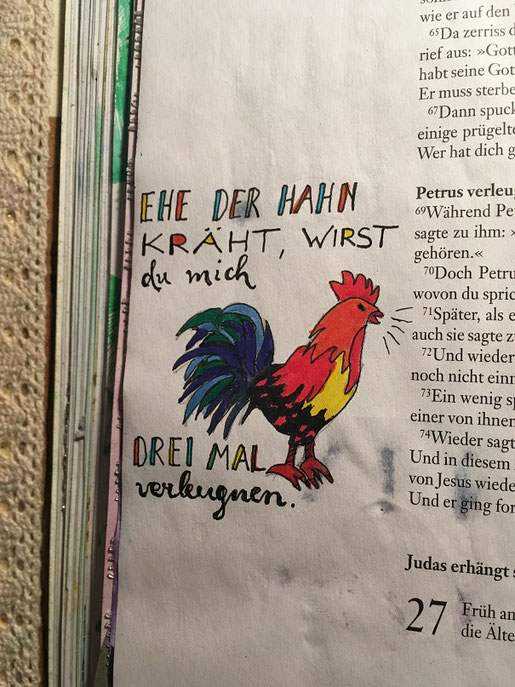 EHE DER HAHN
KRÄHT, WIRST
du mich
DREI MAL
verleugnen.
wie er auf den
65Da zerriss d
rief aus: »Gott
habt seine Got
Er muss sterbe
67Dann spuck
einige prügelt
Wer hat dich g
Petrus verleug
69Während Pe
sagte zu ihm: »
gehören.«
70Doch Petru
wovon du spric
71Später, als e
auch sie sagte z
72Und wieder
noch nicht einm
73Ein wenig sp
einer von ihnen
74Wieder sagt
Und in diesem
von Jesus wiede
Und er ging for
Judas erhängt s
27 Früh an
die Älte